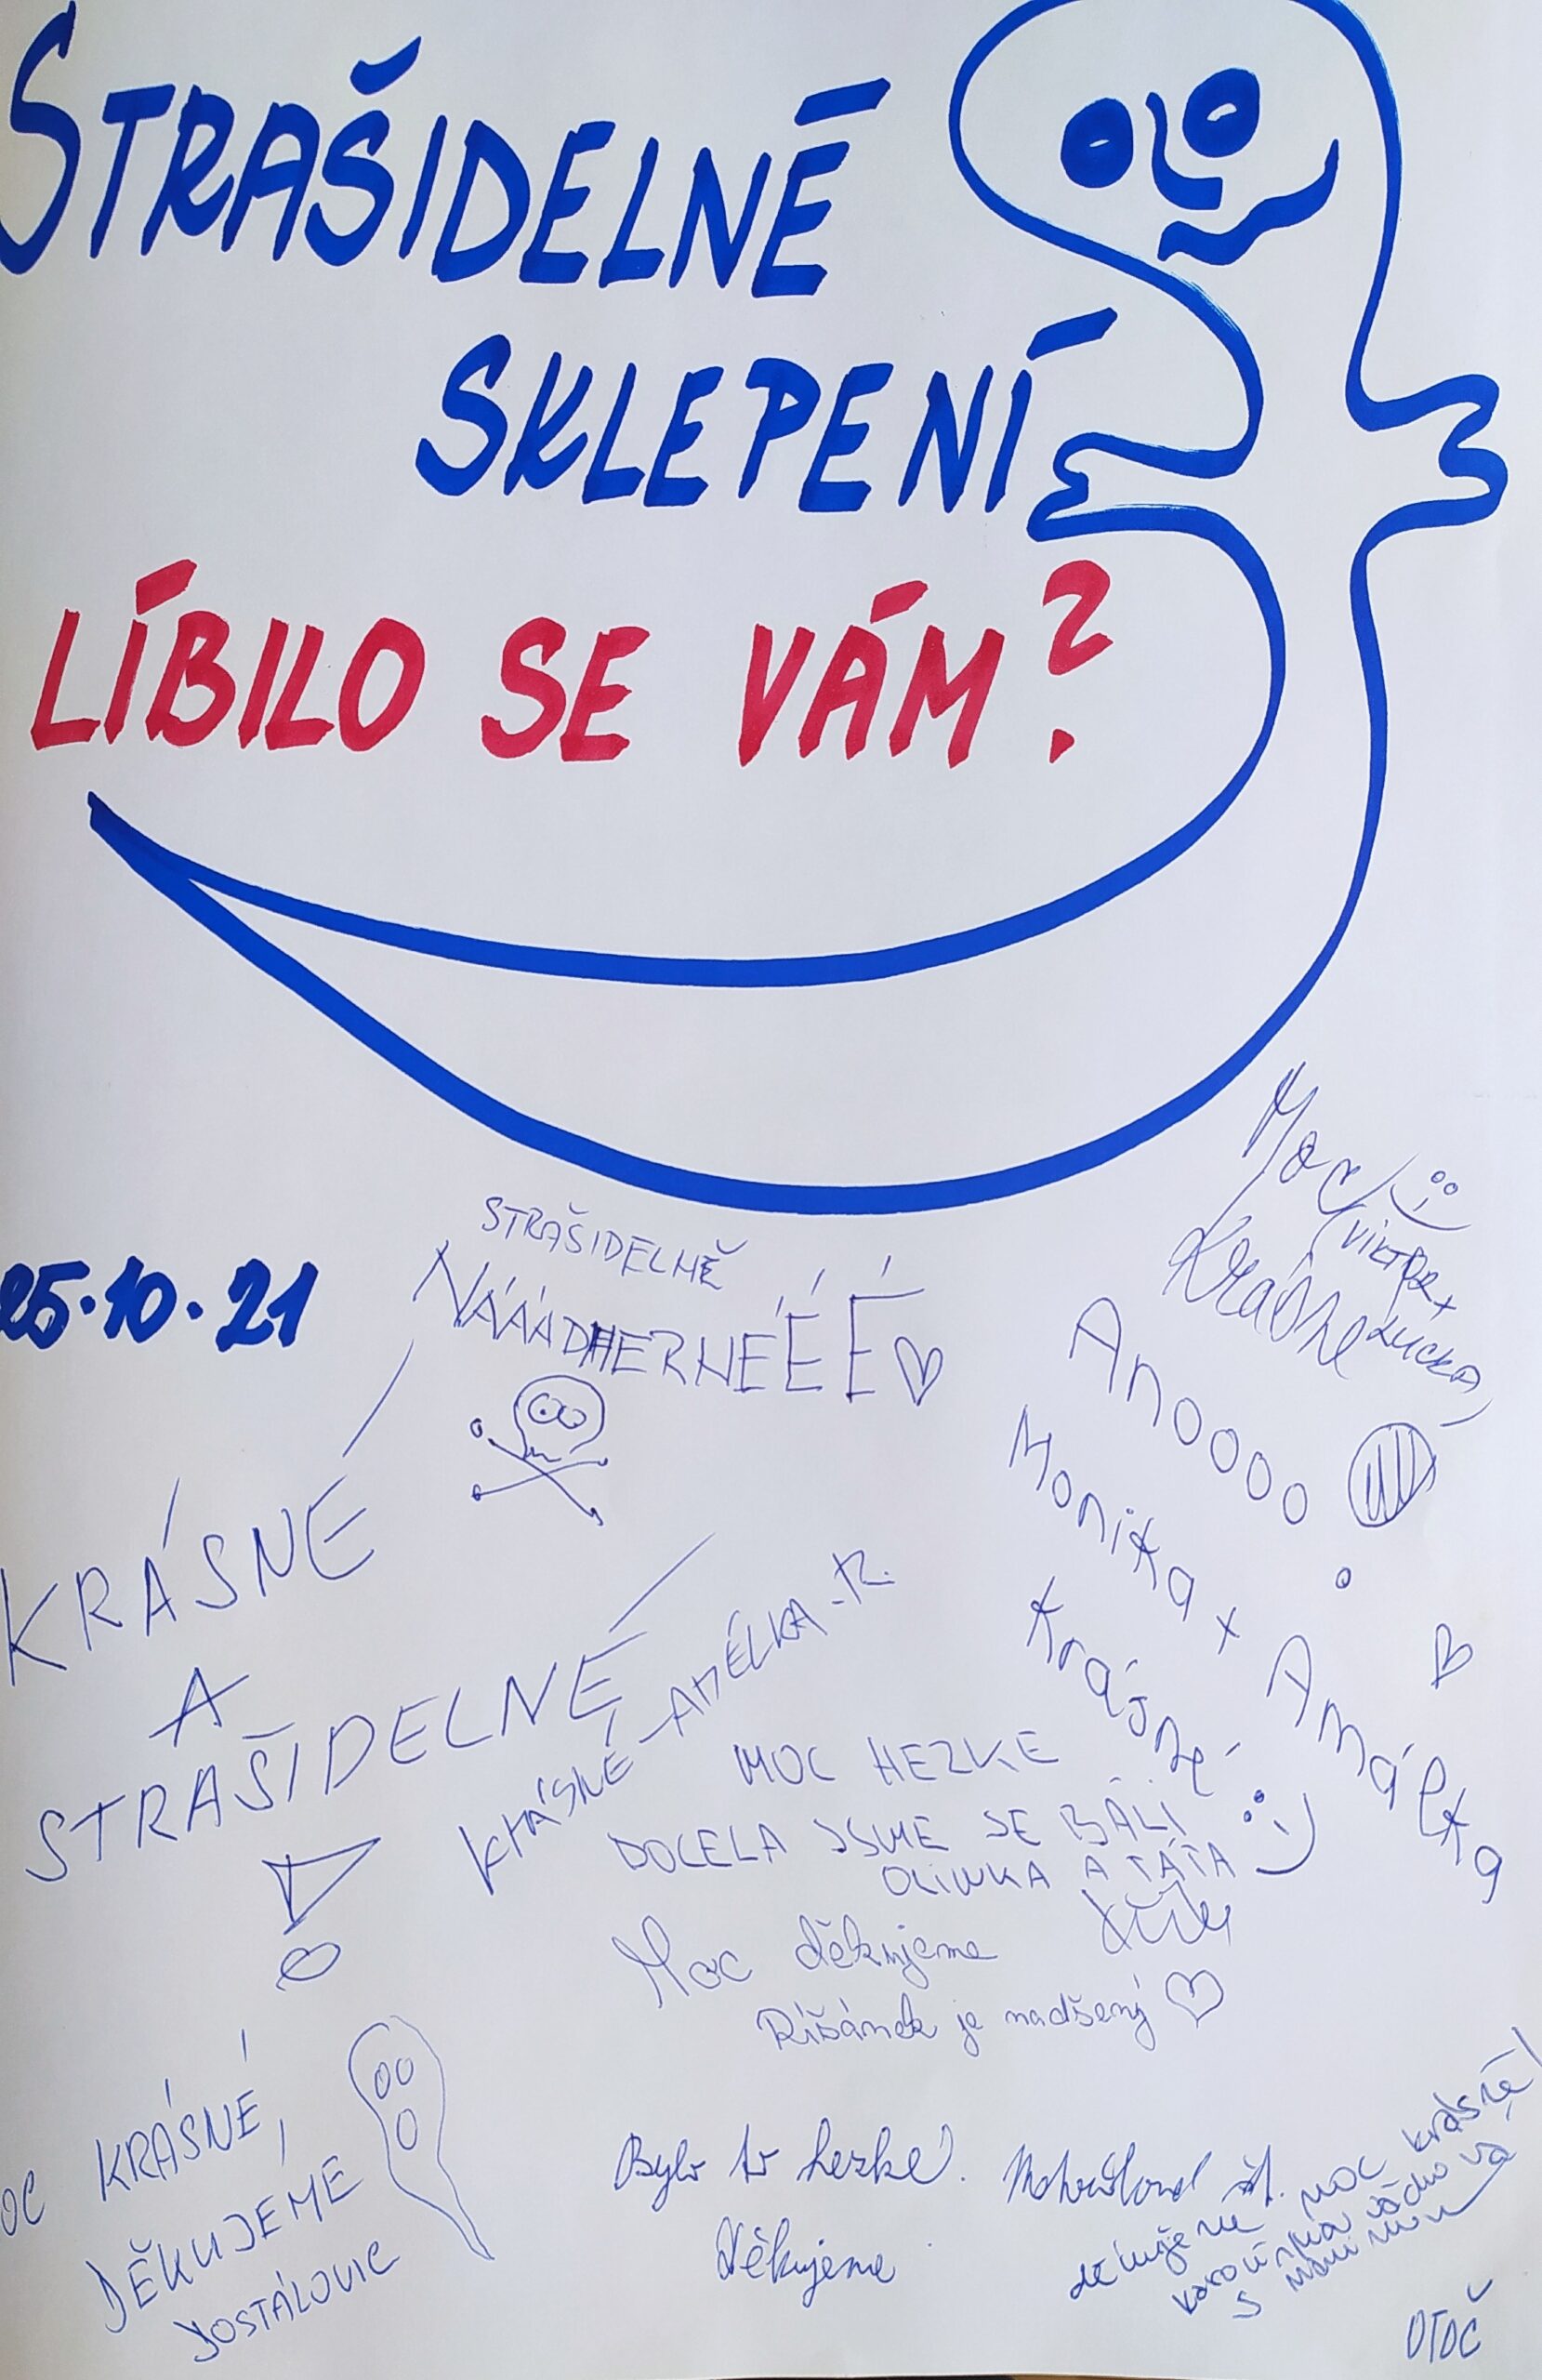 STRAŠIDELNÉ
SKLEPENÍ
LÍBILO SE VÁM?
25.10.21
STRAŠIDELNĚ
NÁÁÁDHERNÉÉÉ
Moc
Krásné
(VIKTOR +
LUCKA)
Anoooo
Monika + Amálka
Krásné
KRÁSNÉ
A
STRAŠIDELNÉ
KRÁSNÉ - AMÉLKA-R.
MOC HEZKE
DOCELA JSME SE BÁLI
OLIWKA A TÁTA
Moc děkujeme
Ríšánek je nadšený
OC KRÁSNÉ,
DĚKUJEME
DOSTÁLOVIC
Bylo to hezké.
Děkujeme
děkujeme moc krásné!
s maminkou
OTOČ